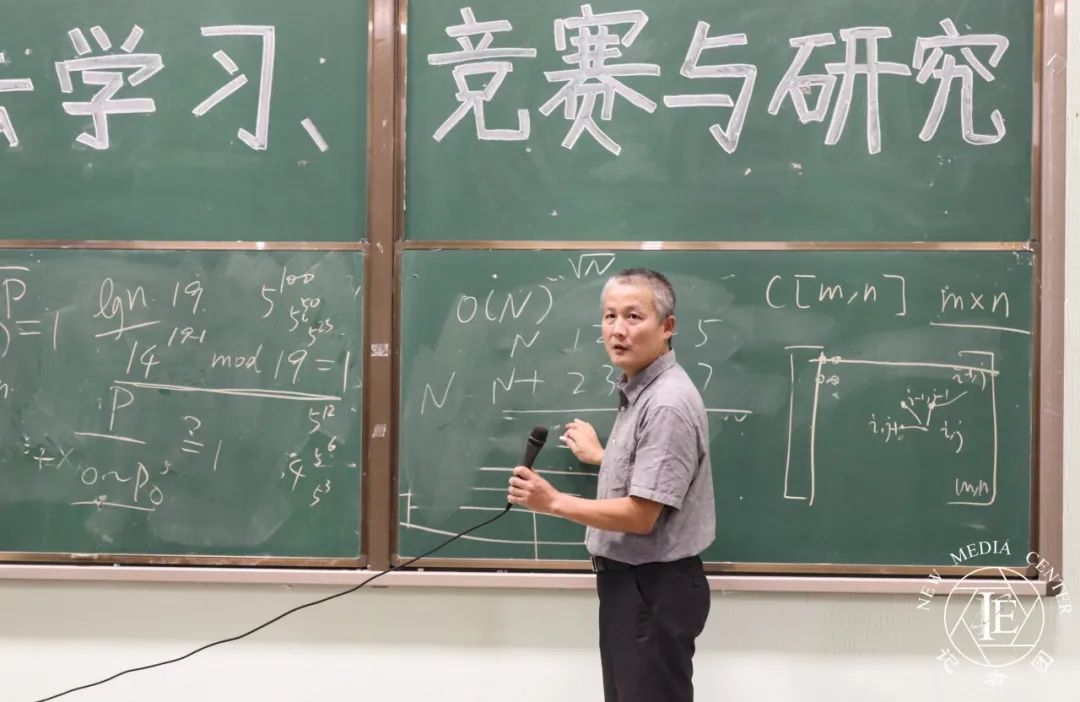 学习、竞赛与研究
P
=1
lgn 19
14 mod 19=1
P ?=1
0~P₀
5¹⁰⁰
5⁵⁰
5²⁵
5¹²
5⁶
5³
√N
O(N)
N
N N+ 23
C[m,n] m×n
i-1,j-1
i,j
m,n
NEW MEDIA CENTER
IE
记者团